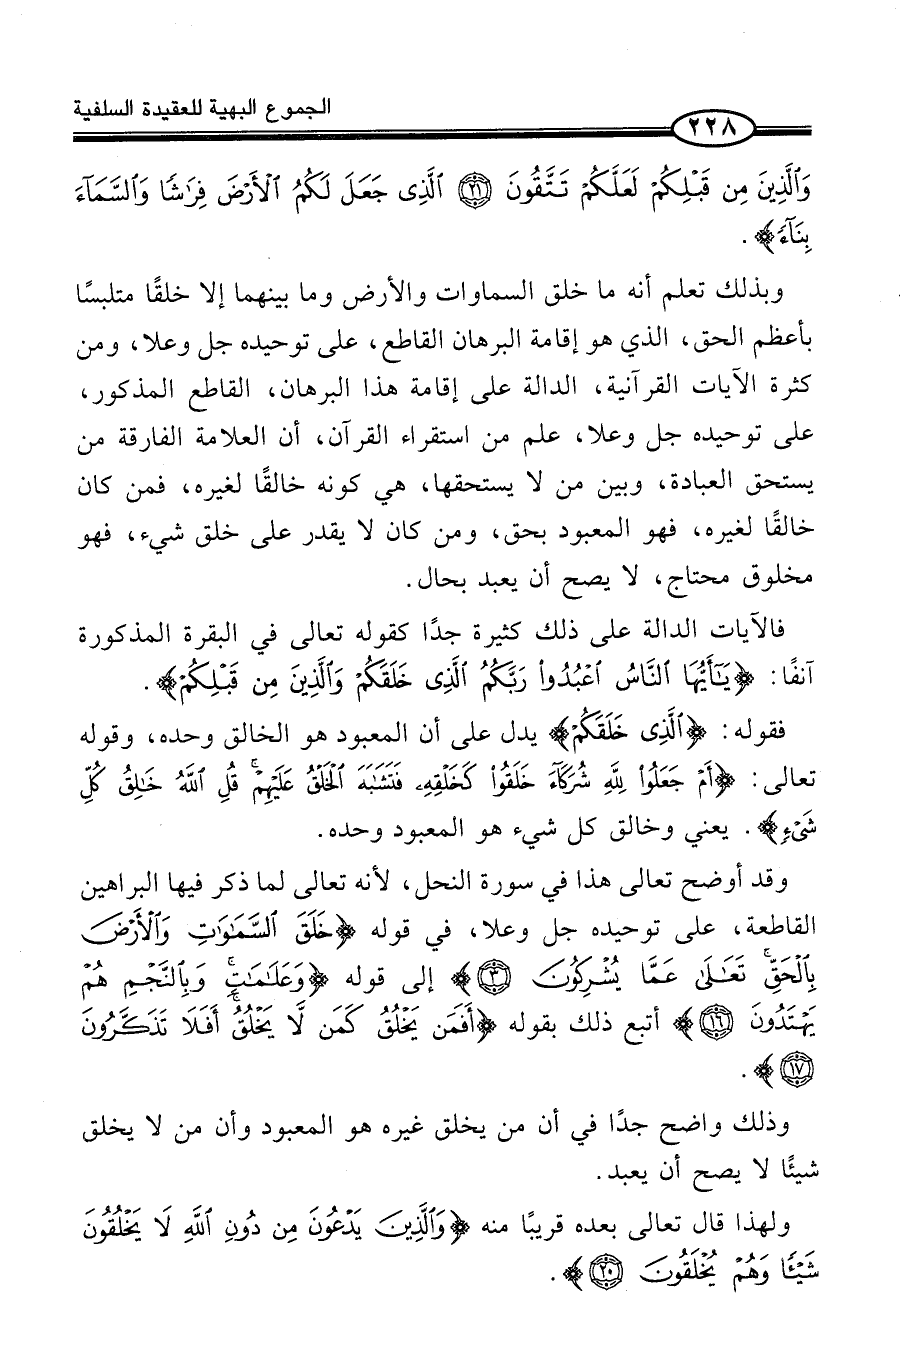 الجموع البهية للعقيدة السلفية
٢٢٨
وَٱلَّذِينَ مِن قَبۡلِكُمۡ لَعَلَّكُمۡ تَتَّقُونَ ٢١ ٱلَّذِى جَعَلَ لَكُمُ ٱلۡأَرۡضَ فِرَٰشًا وَٱلسَّمَآءَ
بِنَآءً﴾ .
وبذلك تعلم أنه ما خلق السماوات والأرض وما بينهما إلا خلقًا متلبسًا
بأعظم الحق، الذي هو إقامة البرهان القاطع، على توحيده جل وعلا، ومن
كثرة الآيات القرآنية، الدالة على إقامة هذا البرهان، القاطع المذكور،
على توحيده جل وعلا، علم من استقراء القرآن، أن العلامة الفارقة من
يستحق العبادة، وبين من لا يستحقها، هي كونه خالقًا لغيره، فمن كان
خالقًا لغيره، فهو المعبود بحق، ومن كان لا يقدر على خلق شيء، فهو
مخلوق محتاج، لا يصح أن يعبد بحال.
فالآيات الدالة على ذلك كثيرة جدًا كقوله تعالى في البقرة المذكورة
آنفًا: ﴿يَٰٓأَيُّهَا ٱلنَّاسُ ٱعۡبُدُوا۟ رَبَّكُمُ ٱلَّذِى خَلَقَكُمۡ وَٱلَّذِينَ مِن قَبۡلِكُمۡ﴾ .
فقوله: ﴿ٱلَّذِى خَلَقَكُمۡ﴾ يدل على أن المعبود هو الخالق وحده، وقوله
تعالى: ﴿أَمۡ جَعَلُوا۟ لِلَّهِ شُرَكَآءَ خَلَقُوا۟ كَخَلۡقِهِۦ فَتَشَٰبَهَ ٱلۡخَلۡقُ عَلَيۡهِمۡۚ قُلِ ٱللَّهُ خَٰلِقُ كُلِّ
شَىۡءٍ﴾ . يعني وخالق كل شيء هو المعبود وحده.
وقد أوضح تعالى هذا في سورة النحل، لأنه تعالى لما ذكر فيها البراهين
القاطعة، على توحيده جل وعلا، في قوله ﴿خَلَقَ ٱلسَّمَٰوَٰتِ وَٱلۡأَرۡضَ
بِٱلۡحَقِّۚ تَعَٰلَىٰ عَمَّا يُشۡرِكُونَ ٣﴾ إلى قوله ﴿وَعَلَٰمَٰتٍۚ وَبِٱلنَّجۡمِ هُمۡ
يَهۡتَدُونَ ١٦﴾ أتبع ذلك بقوله ﴿أَفَمَن يَخۡلُقُ كَمَن لَّا يَخۡلُقُۗ أَفَلَا تَذَكَّرُونَ
١٧﴾ .
وذلك واضح جدًا في أن من يخلق غيره هو المعبود وأن من لا يخلق
شيئًا لا يصح أن يعبد.
ولهذا قال تعالى بعده قريبًا منه ﴿وَٱلَّذِينَ يَدۡعُونَ مِن دُونِ ٱللَّهِ لَا يَخۡلُقُونَ
شَيۡـًٔا وَهُمۡ يُخۡلَقُونَ ٢٠﴾ .